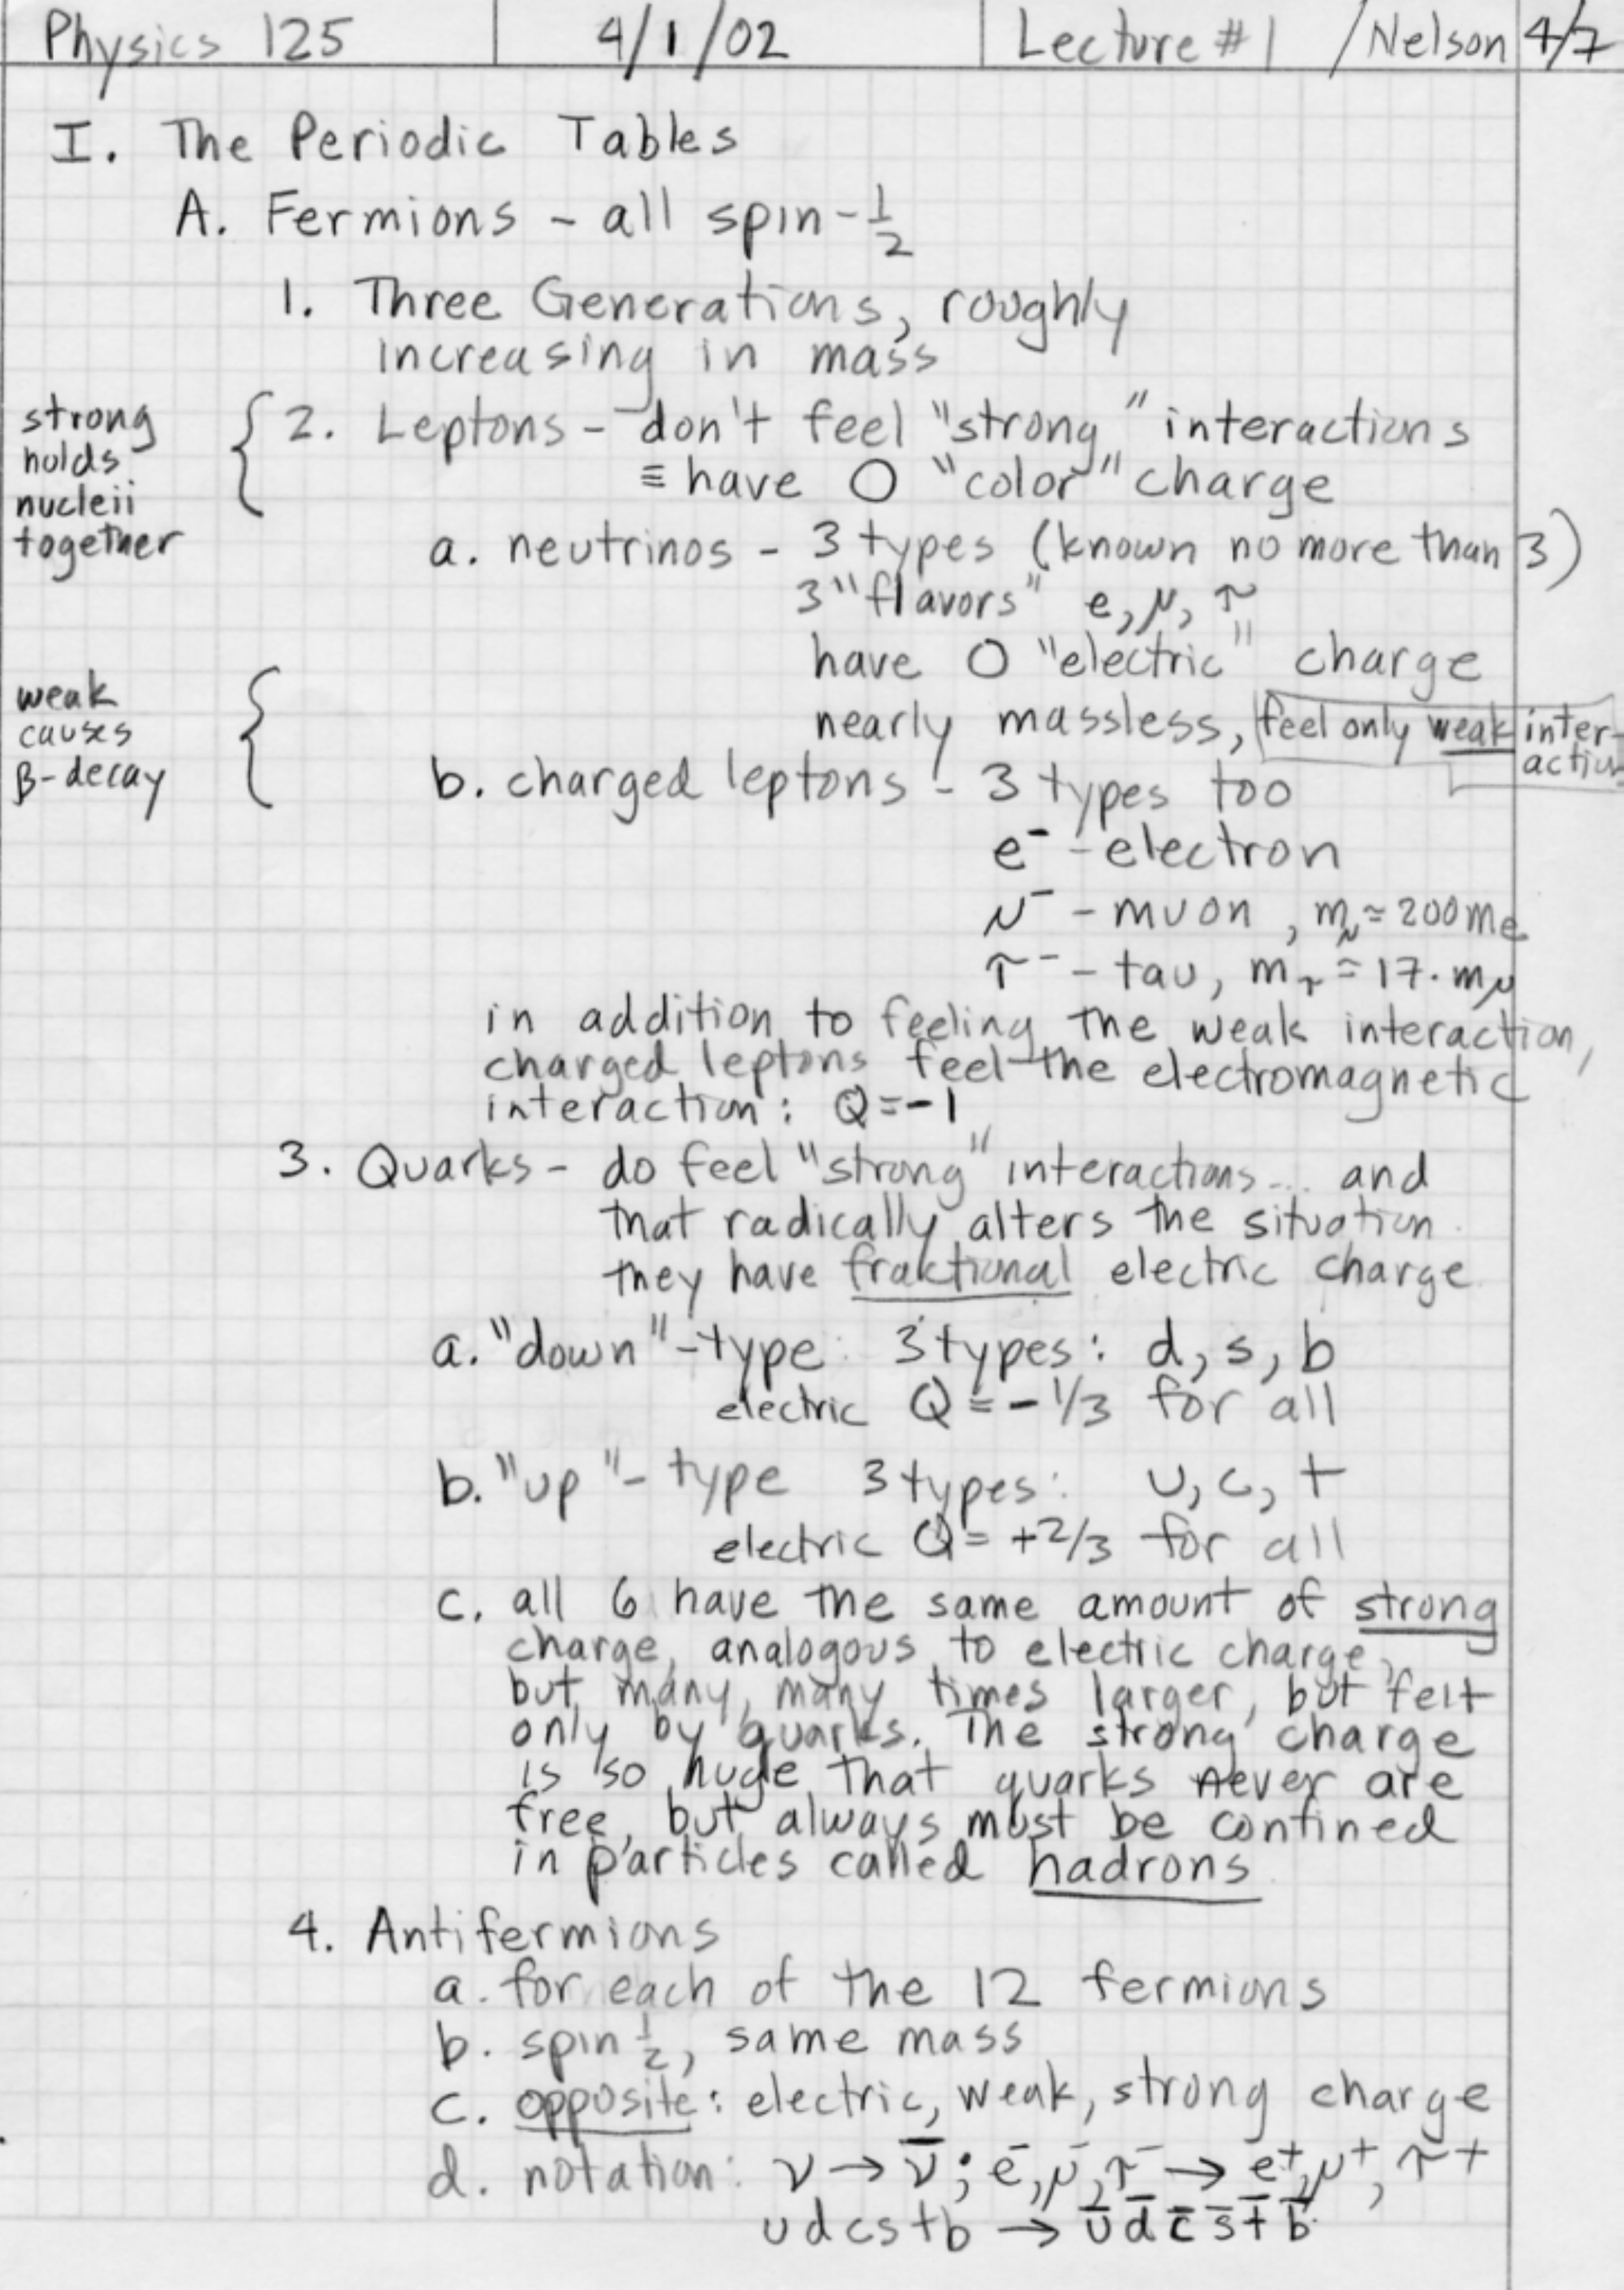 Physics 125 4/1/02 Lecture #1 /Nelson 4/7
I. The Periodic Tables
A. Fermions - all spin-1/2
1. Three Generations, roughly
increasing in mass
strong
holds
nucleii
together
2. Leptons - don't feel "strong" interactions
≡ have 0 "color" charge
a. neutrinos - 3 types (known no more than 3)
3 "flavors" e, μ, τ
have 0 "electric" charge
nearly massless, feel only weak inter-
action
weak
causes
β-decay
b. charged leptons - 3 types too
e⁻ - electron
μ⁻ - muon, m_μ ≈ 200 m_e
τ⁻ - tau, m_τ ≈ 17·m_μ
in addition to feeling the weak interaction,
charged leptons feel the electromagnetic
interaction: Q=-1
3. Quarks - do feel "strong" interactions... and
that radically alters the situation.
they have fraktional electric charge
a. "down"-type: 3 types: d, s, b
electric Q = -1/3 for all
b. "up"-type 3 types: u, c, t
electric Q = +2/3 for all
c. all 6 have the same amount of strong
charge, analogous to electric charge,
but many, many times larger, but felt
only by quarks. The strong charge
is so huge that quarks never are
free, but always must be confined
in particles called hadrons
4. Antifermions
a. for each of the 12 fermions
b. spin 1/2, same mass
c. opposite: electric, weak, strong charge
d. notation: ν → ν̄; e⁻, μ⁻, τ⁻ → e⁺, μ⁺, τ⁺
u d c s t b → ū d̄ c̄ s̄ t̄ b̄